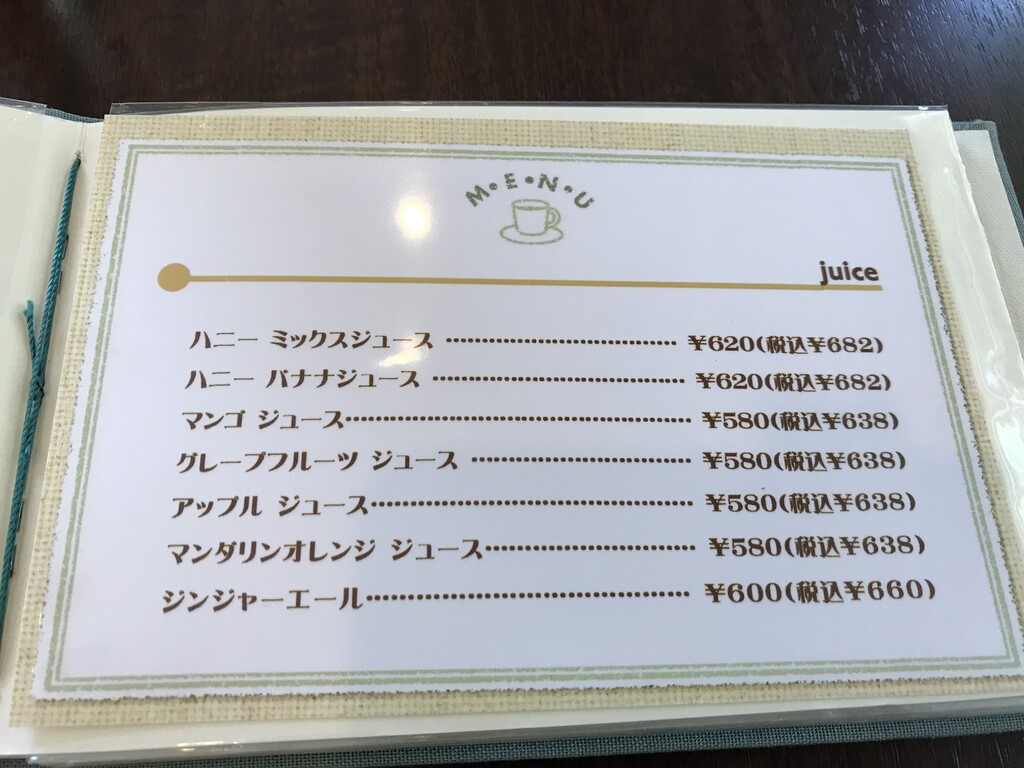 M•E•N•U
juice
ハニー ミックスジュース ………………………… ¥620(税込¥682)
ハニー バナナジュース …………………………… ¥620(税込¥682)
マンゴ ジュース……………………………………… ¥580(税込¥638)
グレープフルーツ ジュース ……………………… ¥580(税込¥638)
アップル ジュース…………………………………… ¥580(税込¥638)
マンダリンオレンジ ジュース……………………… ¥580(税込¥638)
ジンジャーエール…………………………………… ¥600(税込¥660)